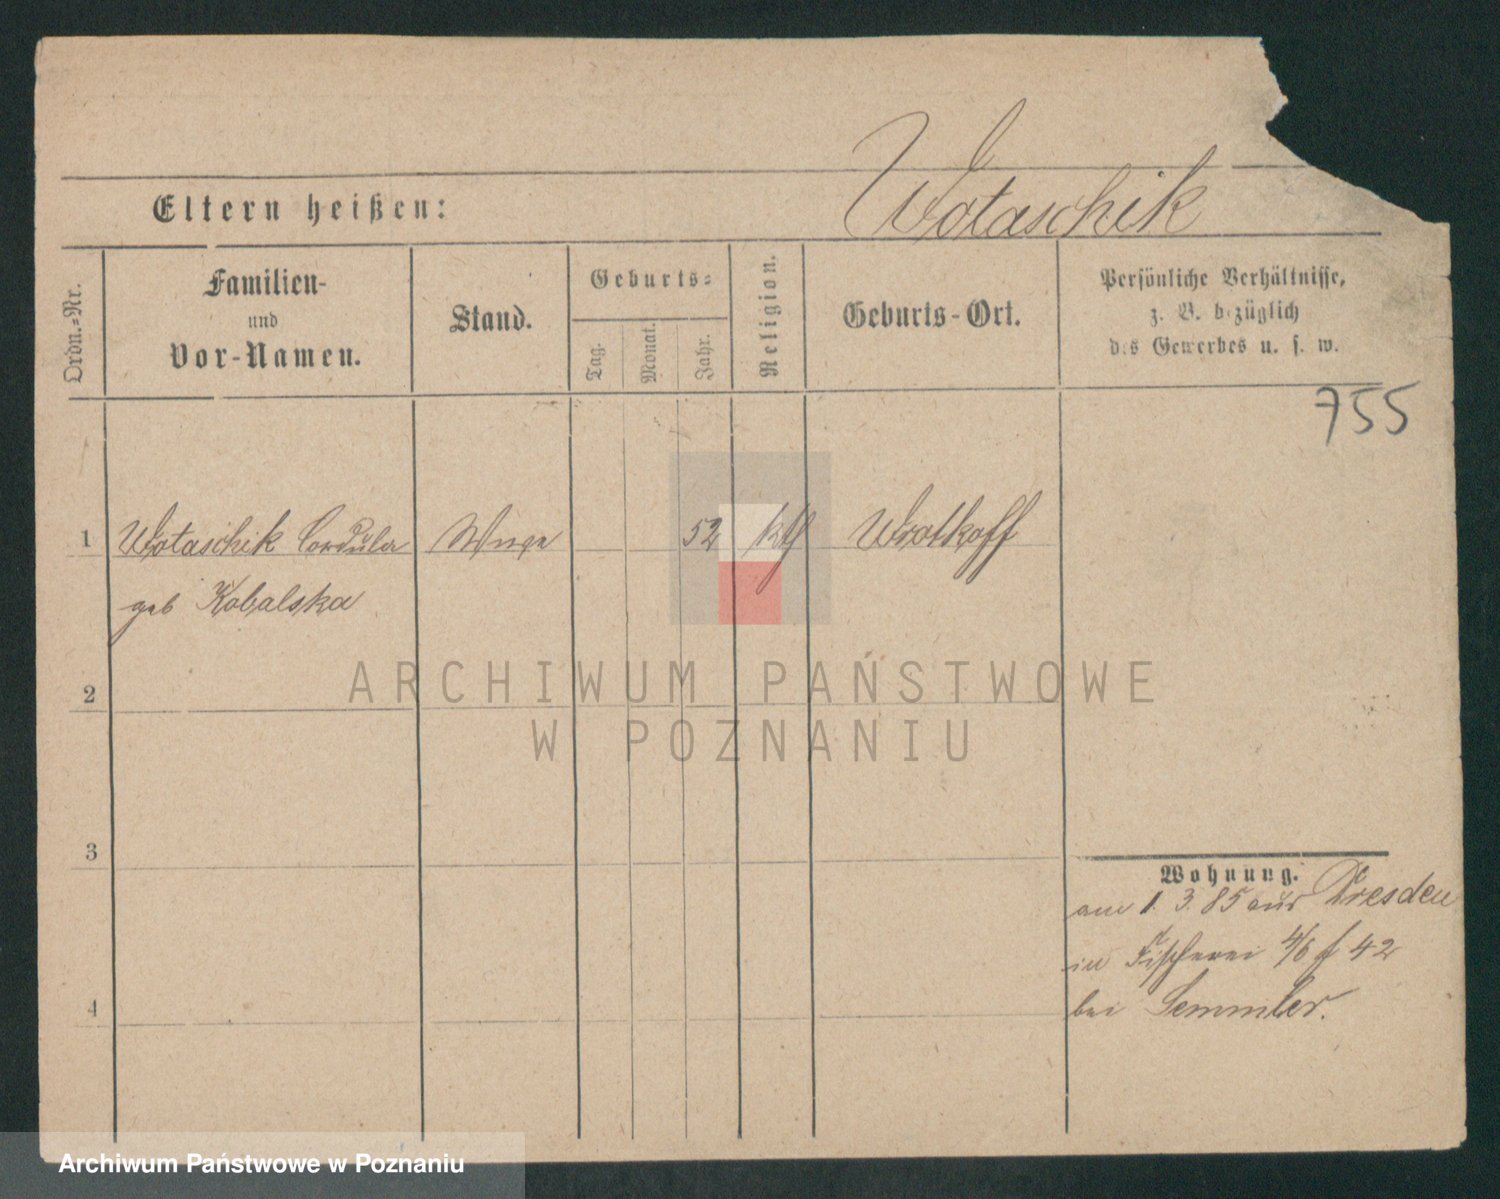 Wotaschik
Eltern heißen:
Ordn.=Nr.
Familien-
und
Vor-Namen.
Stand.
Geburts=
Tag.
Monat.
Jahr.
Religion.
Geburts-Ort.
Persönliche Verhältnisse,
z. B. bezüglich
des Gewerbes u. s. w.
755
1 Wotaschik Cordula 52 kth Wrotkoff
geb Kobalska
2
3
4
Wohnung.
am 1. 3. 85 aus Dresden
in Fischerei 4/6 f 42
bei Semmler.
ARCHIWUM PAŃSTWOWE
W POZNANIU
Archiwum Państwowe w Poznaniu